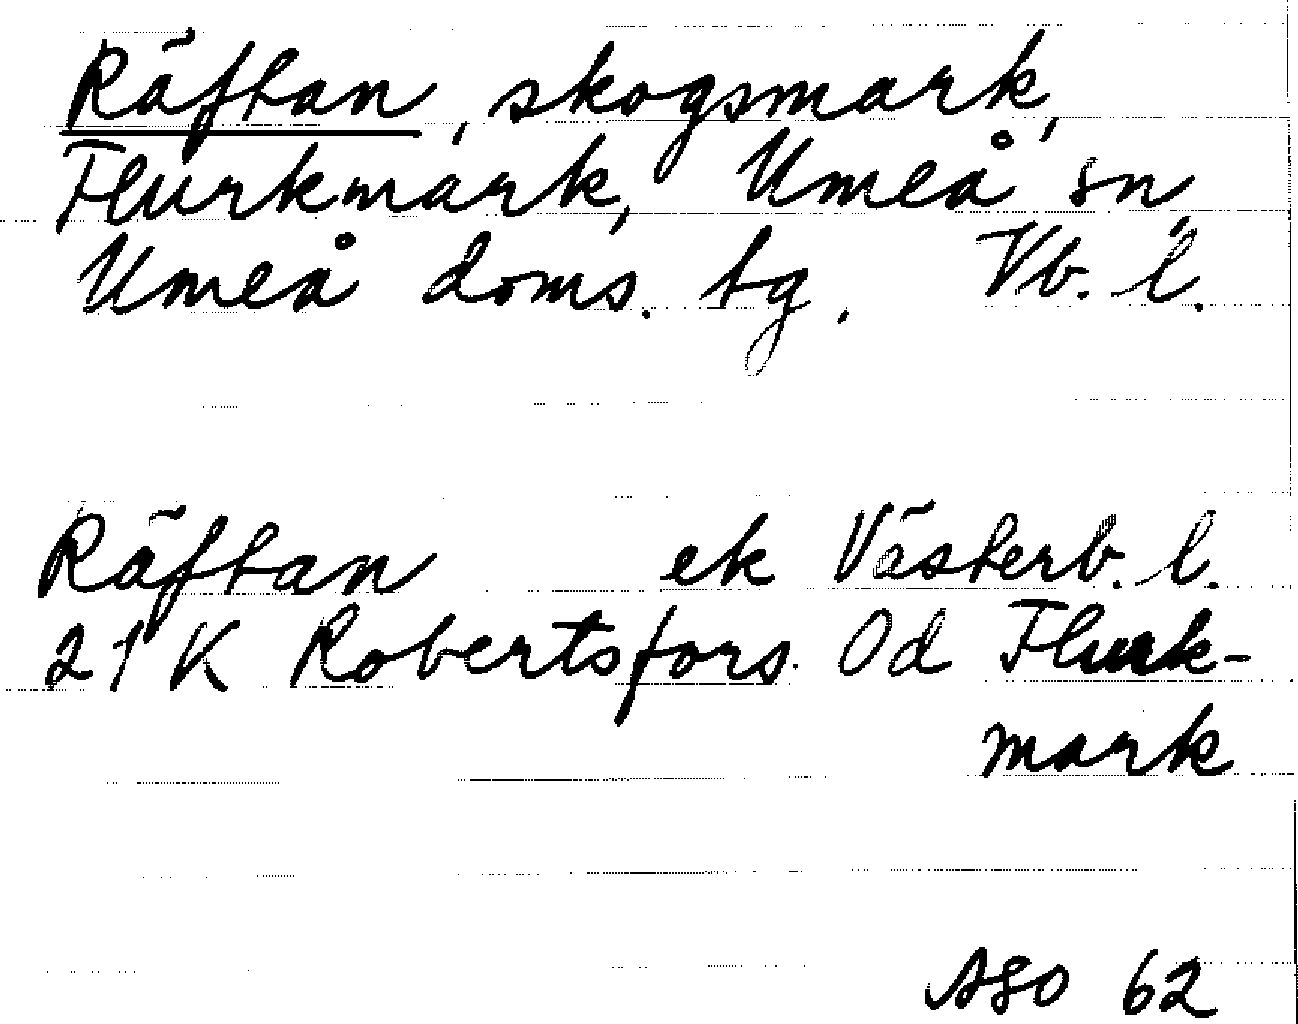 Räftan, skogsmark,
Flurkmark, Umeå sn,
Umeå doms. tg. Vb. l.
Räftan ek Västerb. l.
21 K Robertsfors. Od Flurk-
mark
ASO 62